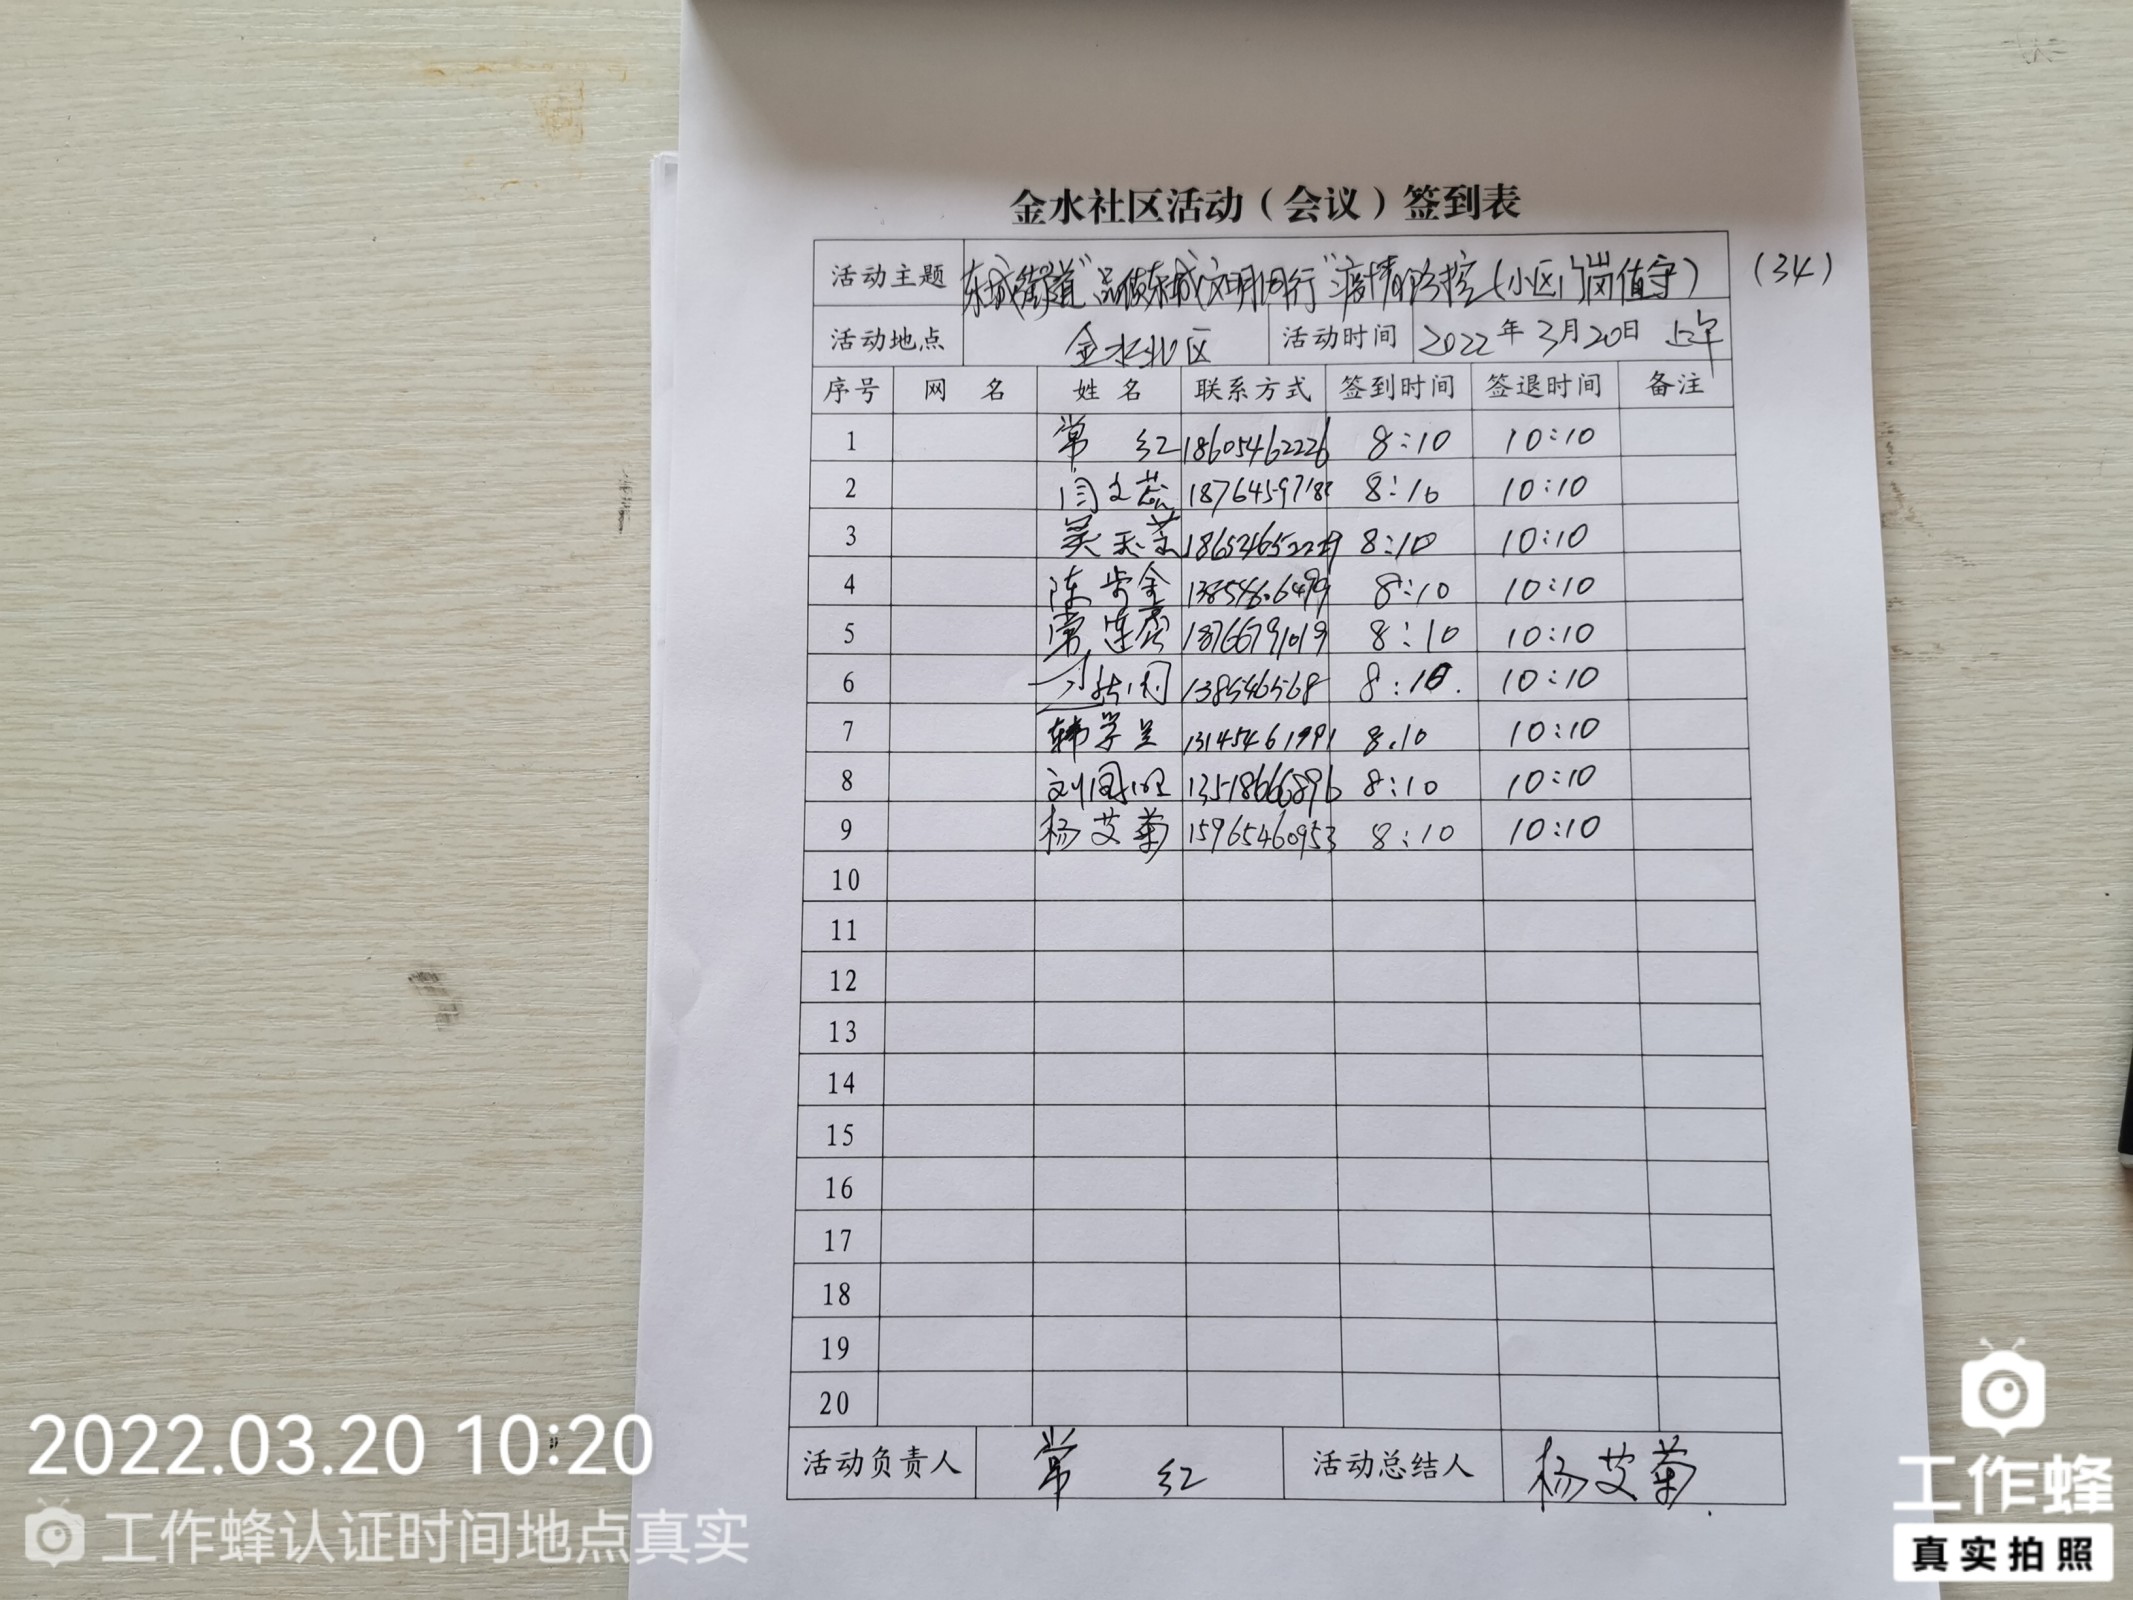 金水社区活动（会议）签到表
活动主题 东城街道"品质东城文明同行"疫情防控（小区门岗值守） （34）
活动地点 金水北区 活动时间 2022年3月20日 上午
序号 网 名 姓 名 联系方式 签到时间 签退时间 备注
1 常 红 18605462226 8:10 10:10
2 闫文蕊 8:10 10:10
3 8:10 10:10
4 陈步金 8:10 10:10
5 常连 18766791019 8:10 10:10
6 138546568 8:10. 10:10
7 韩学 13145461991 8.10 10:10
8 刘国 13518666896 8:10 10:10
9 杨艾菊 15965460953 8:10 10:10
10
11
12
13
14
15
16
17
18
19
20
活动负责人 常 红 活动总结人 杨艾菊.
2022.03.20 10:20
工作蜂认证时间地点真实
工作蜂
真实拍照